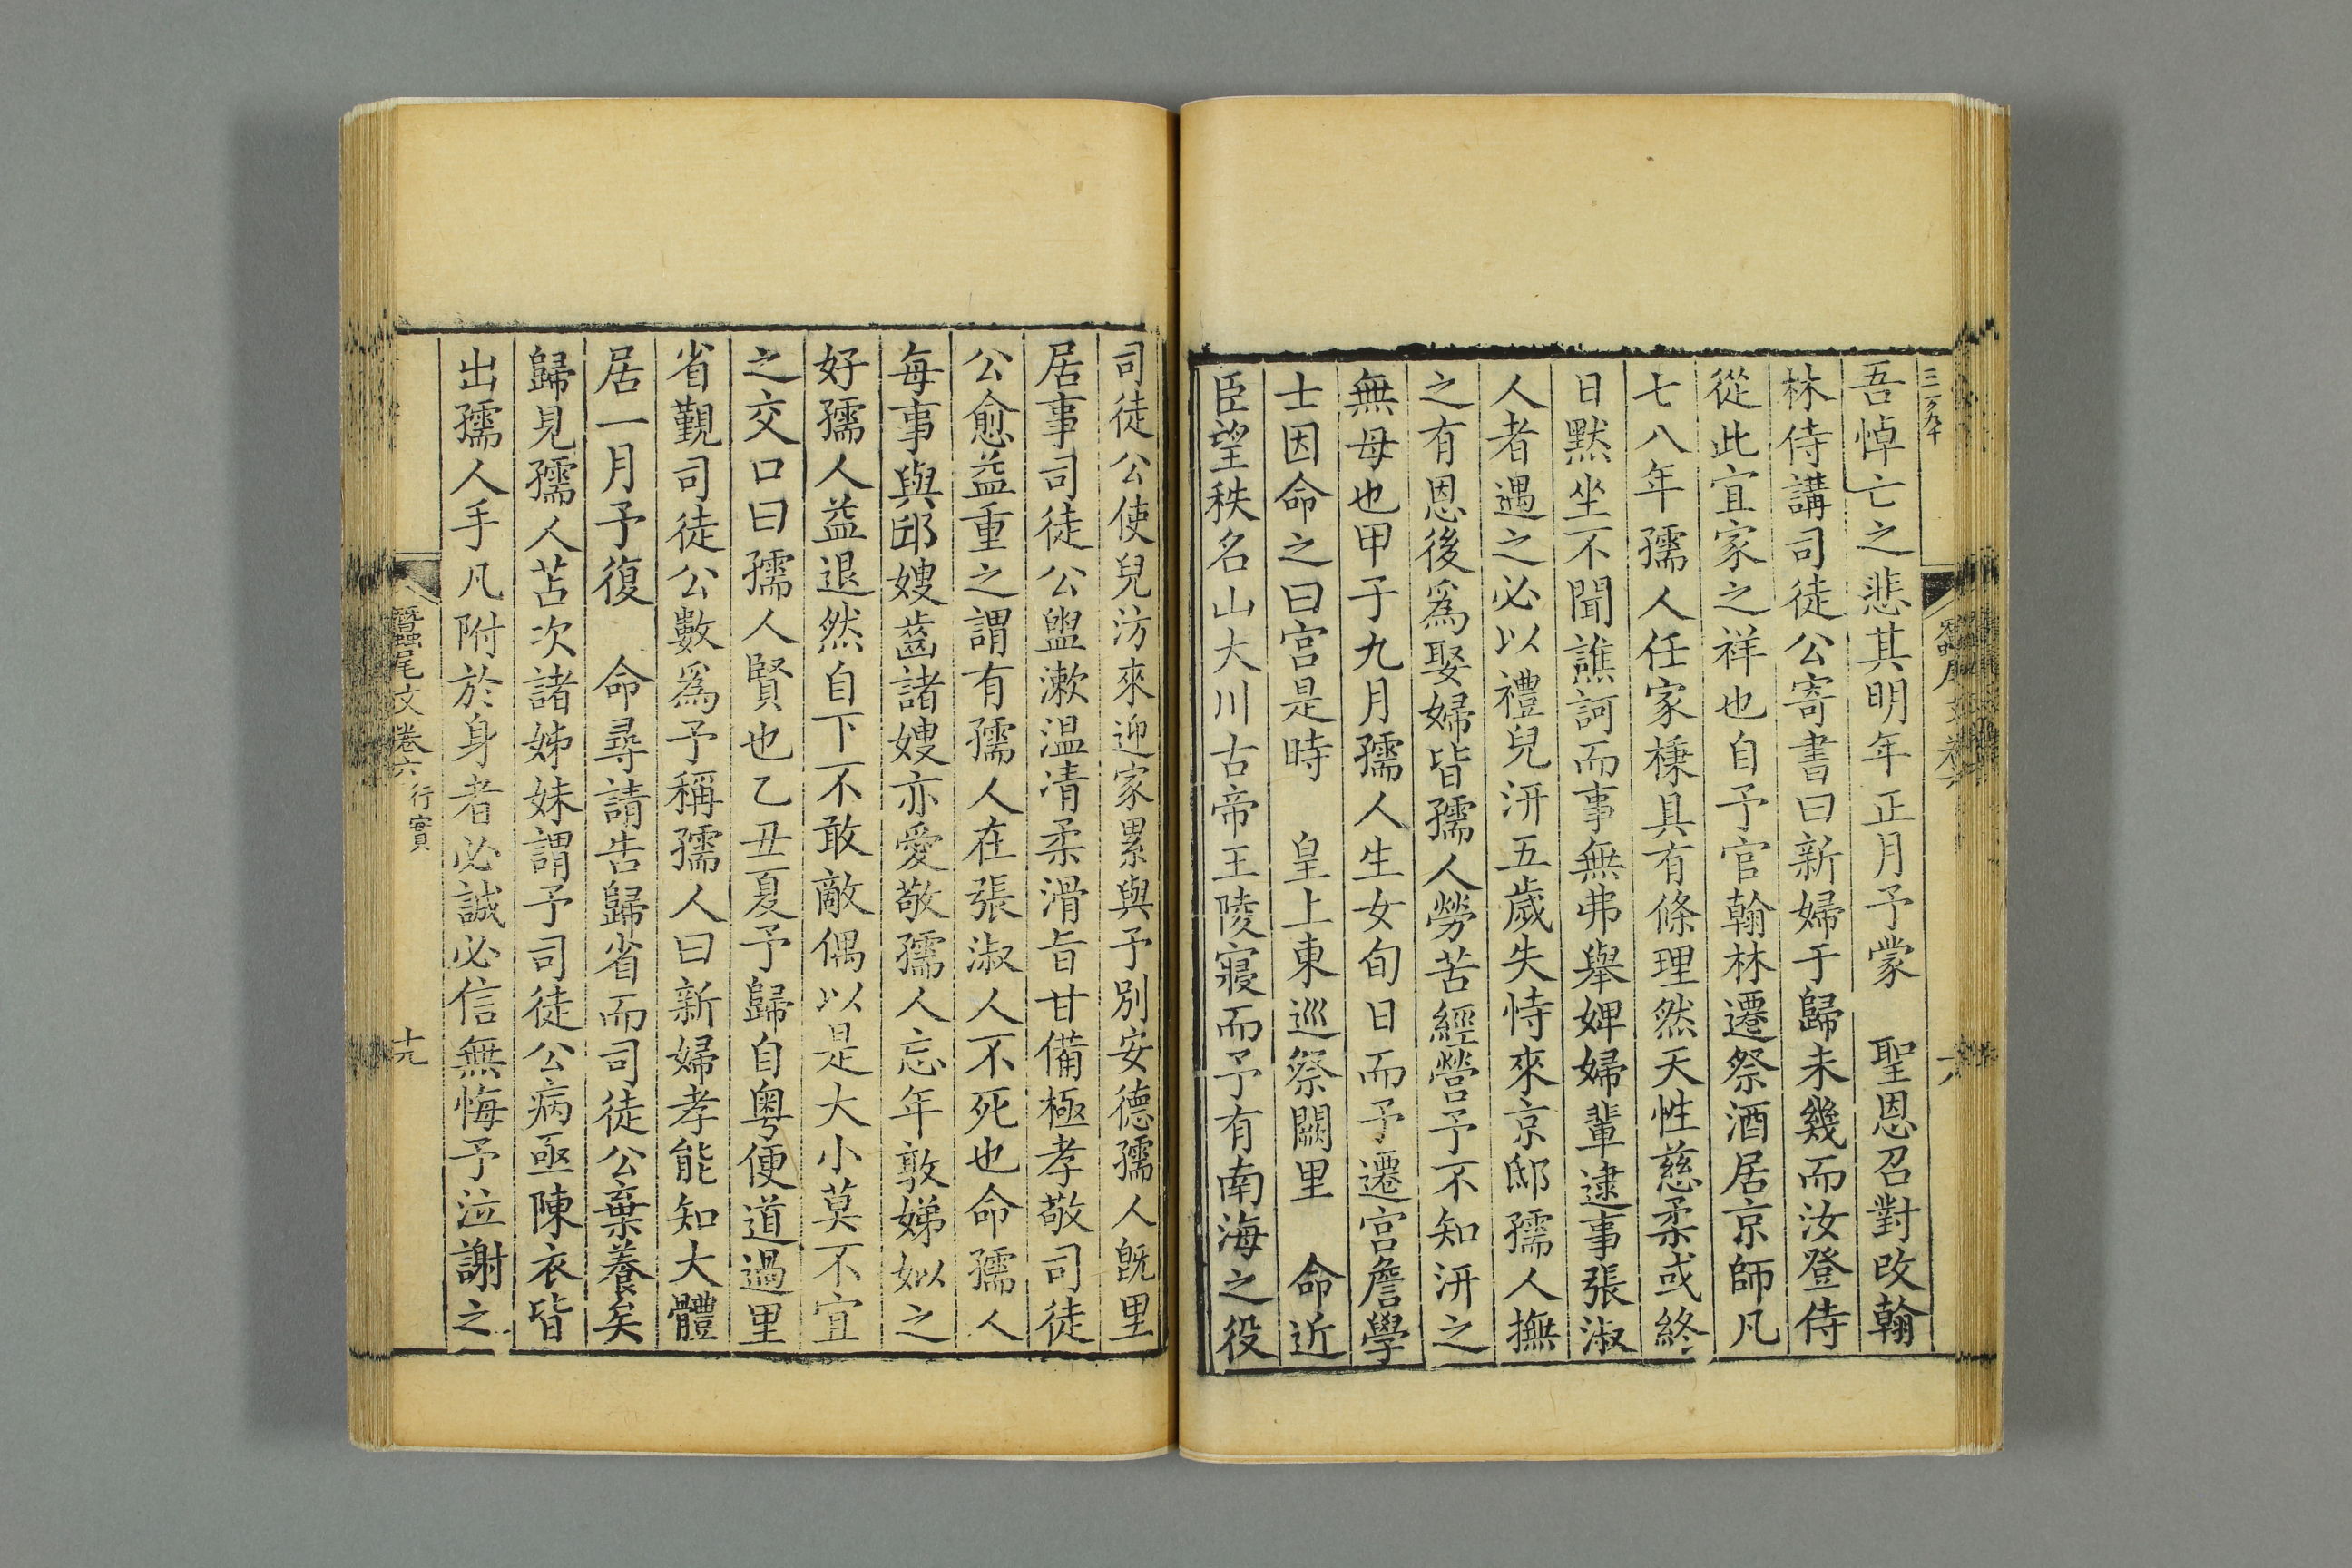 吾悼亡之悲其明年正月予蒙　聖恩召對改翰
林侍講司徒公寄書曰新婦于歸未幾而汝登侍
從此宜家之祥也自予官翰林遷祭酒居京師凡
七八年孺人任家㯤具有條理然天性慈柔或終
日默坐不聞譙訶而事無弗舉婢婦輩逮事張淑
人者遇之必以禮兒汧五歲失恃來京邸孺人撫
之有恩後爲娶婦皆孺人勞苦經營予不知汧之
無母也甲子九月孺人生女旬日而予遷宮詹學
士因命之曰宮是時　皇上東巡祭闕里　命近
臣望秩名山大川古帝王陵寢而予有南海之役
司徒公使兒汸來迎家累與予別安德孺人旣里
居事司徒公盥漱温凊柔滑旨甘備極孝敬司徒
公愈益重之謂有孺人在張淑人不死也命孺人
每事與邱嫂齒諸嫂亦愛敬孺人忘年敦娣姒之
好孺人益退然自下不敢敵偶以是大小莫不宜
之交口曰孺人賢也乙丑夏予歸自粤便道過里
省覲司徒公數爲予稱孺人曰新婦孝能知大體
居一月予復　命尋請告歸省而司徒公棄養矣
歸見孺人苫次諸姊妹謂予司徒公病亟陳衣皆
出孺人手凡附於身者必誠必信無悔予泣謝之
蠶尾文卷六 行實
十九